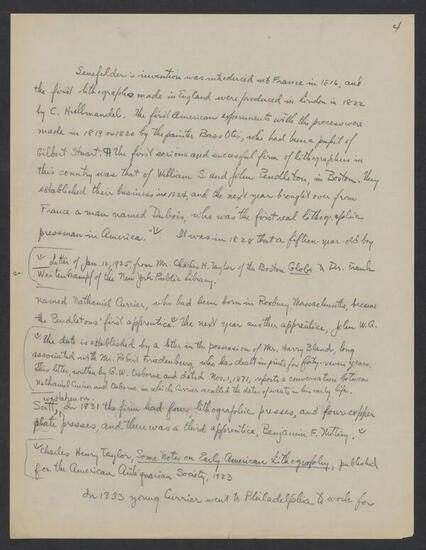 4
Senefelder's invention was introduced into France in 1816, and
the first lithographs made in England were produced in London in 1822
by C. Hullmandel. The first American experiments with the process were
made in 1819 or 1820 by the painter Bass Otis, who had been a pupil of
Gilbert Stuart. ¶ The first serious and successful firm of lithographers in
this country was that of William S. and John Pendleton, in Boston. They
established their business in 1824, and the next year brought over from
France a man named Dubois, who was "the first real lithographic
pressman in America." It was in 1828 that a fifteen-year old boy
Letter of Jan. 10, 1925, from Mr. Charles H. Taylor of the Boston Globe to Dr. Frank
Weitenkampf of the New York Public Library.
named Nathaniel Currier, who had been born in Roxbury Massachusetts, became
the Pendletons' first apprentice. The next year another apprentice, John W. A.
The date is established by a letter in the possession of Mr. Harry Bland, long
associated with Mr. Robert Fridenberg, who has dealt in prints for forty-seven years.
This letter, written by G. W. Osborne and dated Nov. 1, 1871, reports a conversation between
Nathaniel Currier and Osborne in which Currier recalled the dates of events in his early life.
was taken on.
Scott, In 1831 the firm had four lithographic presses, and four copper
plate presses, and there was a third apprentice, Benjamin F. Nutting.
Charles Henry Taylor, Some Notes on Early American Lithography, published
for the American Antiquarian Society, 1923
In 1833 young Currier went to Philadelphia to work for